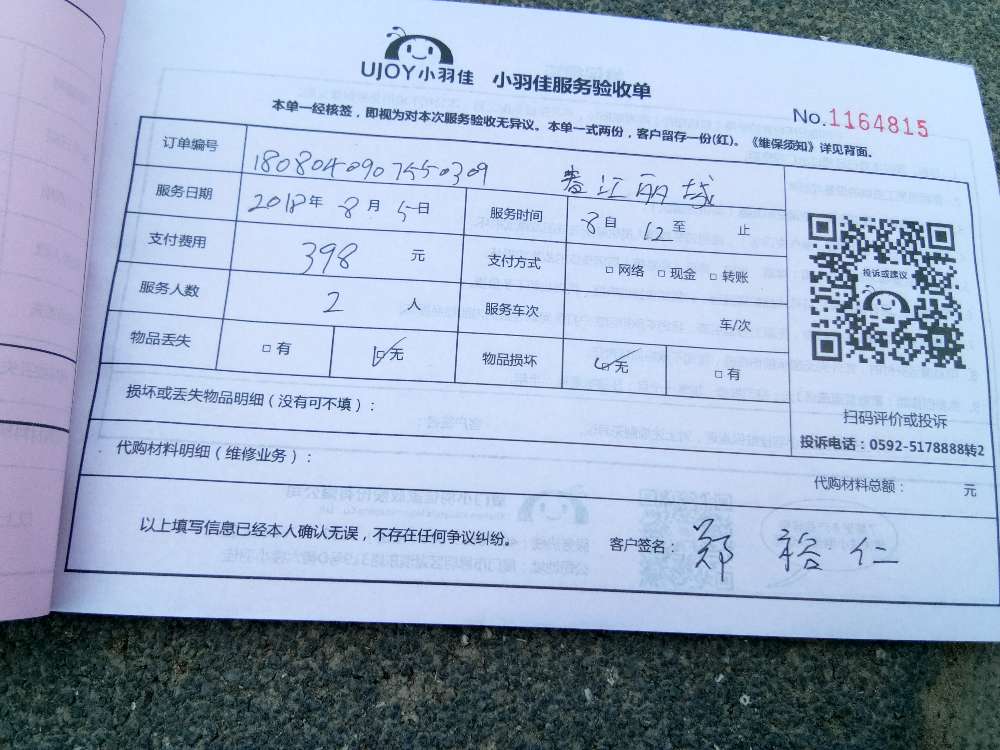 UJOY小羽佳 小羽佳服务验收单
No.1164815
本单一经核签，即视为对本次服务验收无异议。本单一式两份，客户留存一份(红)。《维保须知》详见背面。
订单编号 1808040907550309 春江丽城
服务日期 2018年 8月 5日 服务时间 8自 12至 止
支付费用 398 元 支付方式 □网络 □现金 □转账
服务人数 2 人 服务车次 车/次
物品丢失 □有 ☑无 物品损坏 ☑无 □有
投诉或建议
扫码评价或投诉
投诉电话：0592-5178888转2
损坏或丢失物品明细（没有可不填）：
代购材料明细（维修业务）：
代购材料总额： 元
以上填写信息已经本人确认无误，不存在任何争议纠纷。 客户签名： 郑裕仁